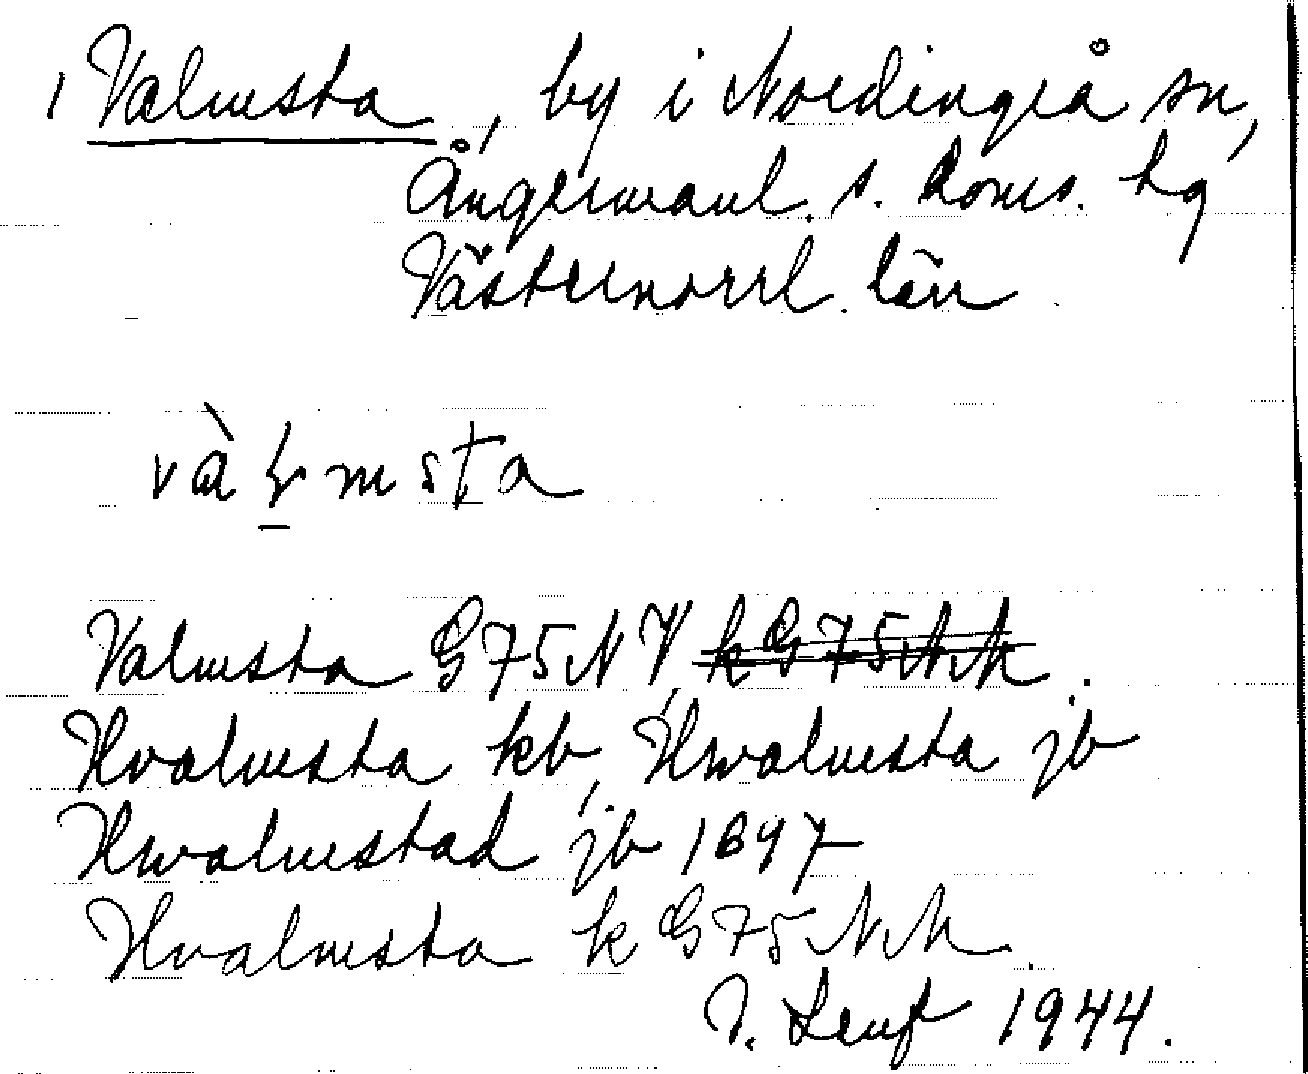 1 Valmsta, by i Nordingrå sn,
Ångermanl. s. doms. hg
Västernorrl. län
vàl̥msta
Valmsta G75NV, k G75NM.
Hvalmsta kb, Hwalmsta jb
Hwalmstad jb 1697
Hvalmsta k G75NM.
I. Leuf 1944.